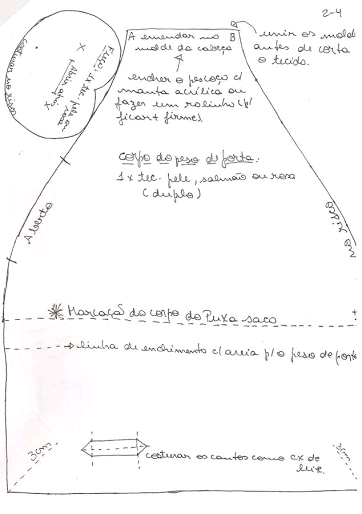 2-4
A emendar no B
molde da cabeça
unir os mold
antes de corta
o tecido.
encher o pescoço c/
manta acrílica ou
fazer um rolinho (p/
ficar + firme)
corpo do peso de porta:
1 x tec. pele, salmão ou rosa
(duplo)
Aberto
✳ Marcação do corpo do Puxa saco
→ linha de enchimento c/ areia p/ o peso de porta
3cm
costurar os cantos como cx de
leite.
3cm